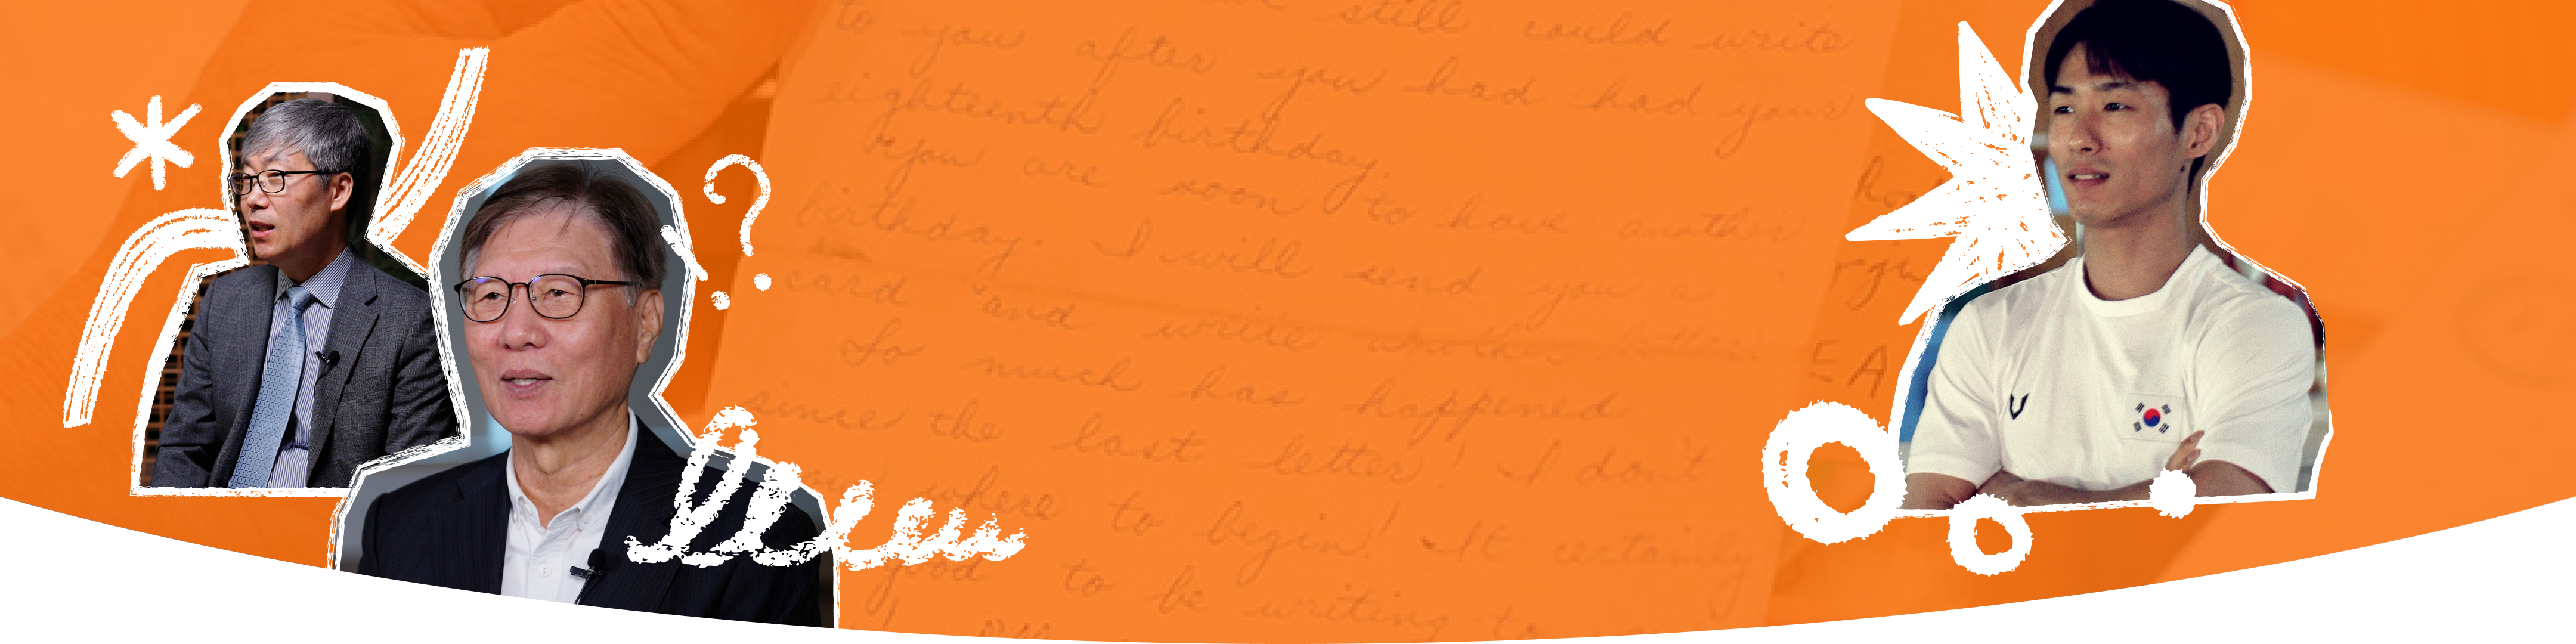 still could write
to you after you had had your
eighteenth birthday.
You are soon to have another
birthday. I will send you a
card and write another letter.
So much has happened
since the last letter! I don't
where to begin! It certainly
good to be writing to
EA